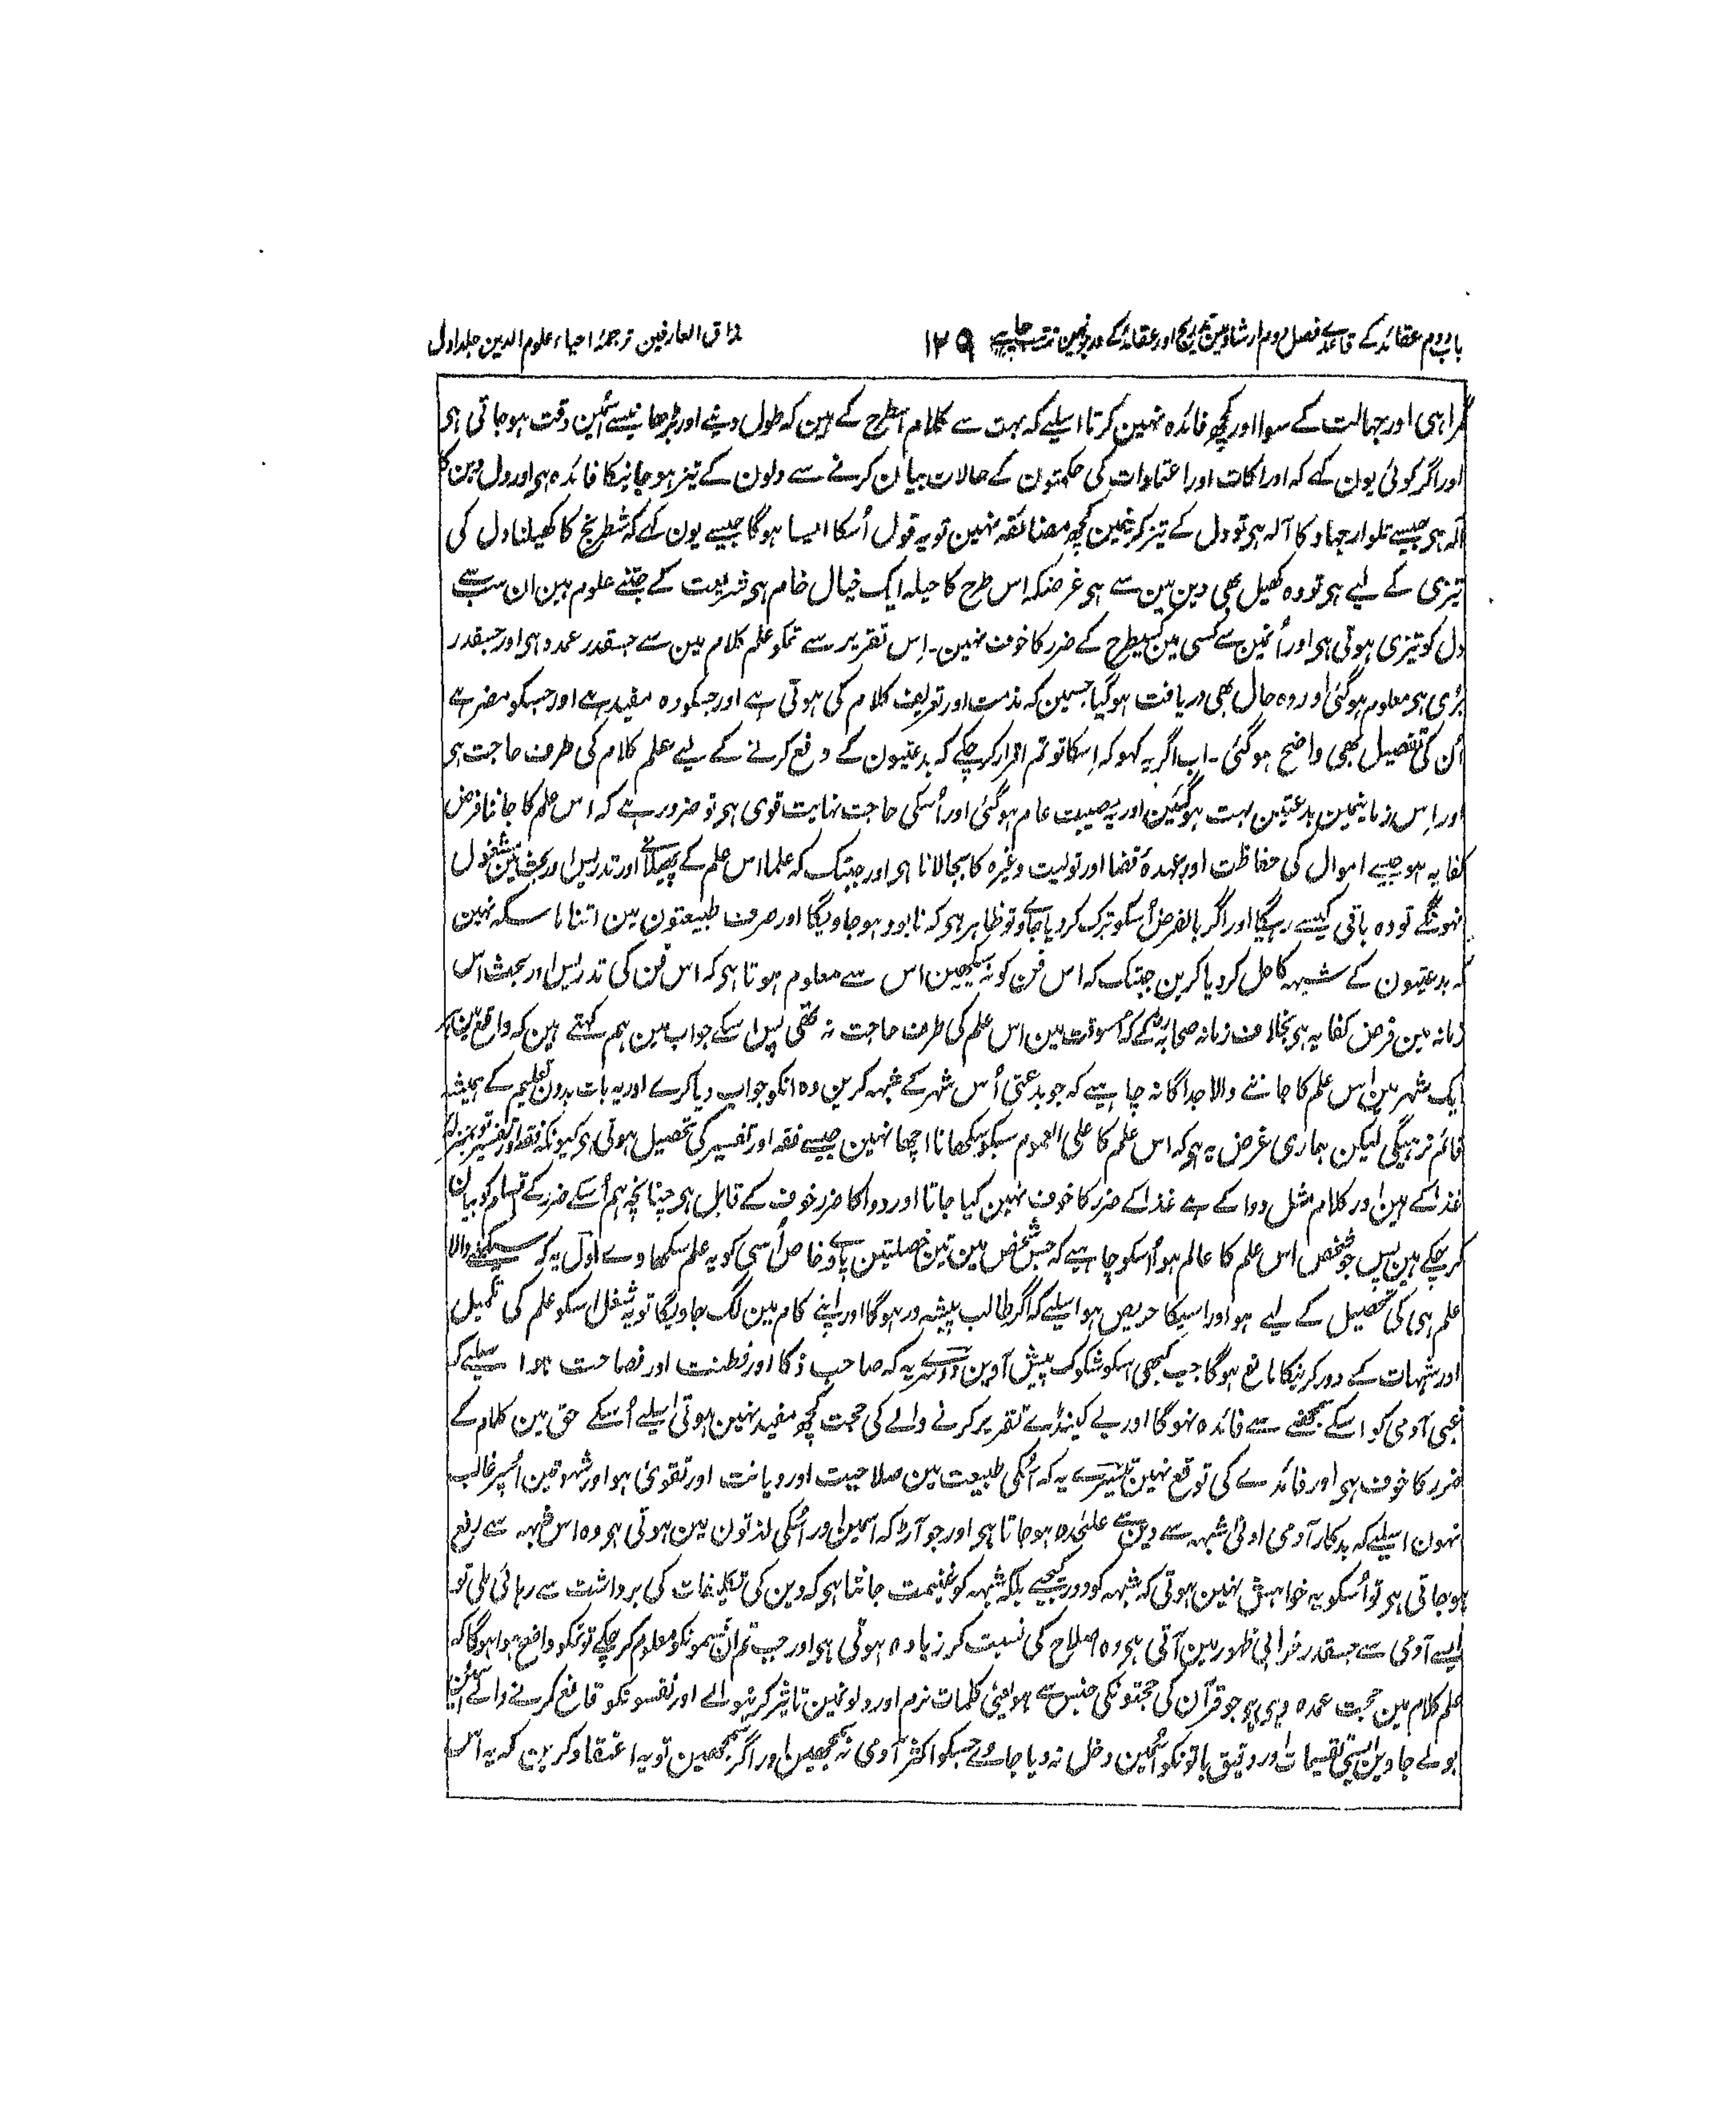 باب دوم عقائد کے قاعدے فصل دوم ارشاد مین تدریج اور عقائد کے درجونمین ترتیب چاہیے ۱۲۹ مذاق العارفین ترجمۂ احیاء علوم الدین جلد اول
گمراہی اور جہالت کے سوا اور کچھ فائدہ نہین کرتا اسلیے کہ بہت سے کلام اسطرح کے ہین کہ طول دینے اور بڑھانیسے اُنمین دقت ہوجاتی ہی
اور اگر کوئی یون کہے کہ ادراکات اور اعتقادات کی حکمتون کے حالات بیان کرنے سے دلون کے تیز ہوجانیکا فائدہ ہی اور دل دین کا
آلہ ہی جیسے تلوار جہاد کا آلہ ہی تو دل کے تیز کرنیمین کچھ مضائقہ نہین تو یہ قول اُسکا ایسا ہوگا جیسے یون کہے کہ شطرنج کا کھیلنا دل کی
تیزی کے لیے ہی تو وہ کھیل بھی دین مین سے ہی غرضکہ اِس طرح کا حیلہ ایک خیال خام ہی شریعت کے جتنے علوم ہین ان سب سے
دل کو تیزی ہوتی ہی اور اُنمین سے کسی مین کسیطرح کے ضرر کا خوف نہین۔ اِس تقریر سے تمکو علم کلام مین سے جسقدر عمدہ ہی اور جسقدر
بُری ہی معلوم ہوگئی اور وہ حال بھی دریافت ہوگیا جسمین کہ مذمت اور تعریف کلام کی ہوتی ہے اور جسکو وہ مفید ہے اور جسکو مضر ہے
اُن کی تفصیل بھی واضح ہوگئی۔ اب اگر یہ کہو کہ اِسکا تو تم اقرار کرچکے کہ بدعتیون کے دفع کرنے کے لیے علم کلام کی طرف حاجت ہی
اور اِس زمانیمین بدعتین بہت ہوگئین اور یہ مصیبت عام ہوگئی اور اُسکی حاجت نہایت قوی ہی تو ضرور ہے کہ اس علم کا جاننا فرض
کفایہ ہو جیسے اموال کی حفاظت اور عہدۂ قضا اور تولیت وغیرہ کا بجا لانا ہی اور جبتک کہ علما اس علم کے پھیلانے اور تدریس اور بحث مین مشغول
نہونگے تو وہ باقی کیسے رہیگا اور اگر بالفرض اُسکو ترک کردیا جاوے تو ظاہر ہی کہ نابود ہوجاویگا اور صرف طبیعتون مین اتنا ماسکہ نہین
کہ بدعتیون کے شبہہ کا حل کردیا کرین جبتک کہ اس فن کو نہ سیکھین اس سے معلوم ہوتا ہی کہ اس فن کی تدریس اور بحث اس
زمانہ مین فرض کفایہ ہی بخلاف زمانہ صحابہ کے کہ اُسوقت مین اس علم کی طرف حاجت نہ تھی پس اسکے جواب مین ہم کہتے ہین کہ واقع مین ہر
ایک شہر مین اس علم کا جاننے والا جداگانہ چاہیے کہ جو بدعتی اُس شہر کے شبہہ کرین وہ انکو جواب دیا کرے اور یہ بات بدون تعلیم کے ہمیشہ
قائم نرہیگی لیکن ہماری غرض یہ ہی کہ اس علم کا علی العموم سبکو سکھانا اچھا نہین جیسے فقہ اور تفسیر کی تحصیل ہوتی ہی کیونکہ فقہ اور تفسیر تو بمنزلہ
غذا کے ہین اور کلام مثل دوا کے ہے غذا کے ضرر کا خوف نہین کیا جاتا اور دوا کا ضرر خوف کے قابل ہی چنانچہ ہم اُسکے ضرر کے اقسام کو بیان
کرچکے ہین پس جو شخص اس علم کا عالم ہو اُسکو چاہیے کہ جس شخص مین تین خصلتین پاوے خاص اُسی کو یہ علم سکھاوے اول یہ کہ سیکھنے والا
علم ہی کی تحصیل کے لیے ہو اور اسیکا حریص ہو اسلیے کہ اگر طالب پیشہ ور ہوگا اور اپنے کام مین لگ جاویگا تو یہ شغل اسکو علم کی تکمیل
اور شبہات کے دور کرنیکا مانع ہوگا جب کبھی اسکو شکوک پیش آوین دوسرے یہ کہ صاحب ذکا اور فطنت اور فصاحت ہو اسلیے کہ
غبی آدمی کو اسکے سمجھنے سے فائدہ نہوگا اور بے کینڈے تقریر کرنے والے کی حجت کچھ مفید نہین ہوتی اسلیے اُسکے حق مین کلام کے
ضرر کا خوف ہی اور فائدے کی توقع نہین تیسرے یہ کہ اُسکی طبیعت مین صلاحیت اور دیانت اور تقویٰ ہو اور شہوتین اُسپر غالب
نہون اسلیے کہ بدکار آدمی ادنیٰ شبہہ سے دین سے علیٰحدہ ہوجاتا ہی اور جو آڑ کہ اسمین اور اُسکی لذتون مین ہوتی ہی وہ اس شبہہ سے رفع
ہوجاتی ہی تو اُسکو یہ خواہش نہین ہوتی کہ شبہہ کو دور کیجیے بلکہ شبہہ کو غنیمت جانتا ہی کہ دین کی تکلیفات کی برداشت سے رہائی ملی تو
ایسے آدمی سے جسقدر خرابی ظہور مین آتی ہی وہ اصلاح کی نسبت کر زیادہ ہوتی ہی اور جب تم ان قسمونکو معلوم کرچکے تو تمکو واضح ہوا ہوگا کہ
علم کلام مین حجت عمدہ وہی ہی جو قرآن کی حجتونکی جنس سے ہو یعنی کلمات نرم اور دلونمین تاثیر کرنیوالے اور نفسونکو قانع کرنے والے اُسمین
بولے جاوین ایسی تقسیمات اور دقیق باتونکو اُسمین دخل نہ دیا جاوے جسکو اکثر آدمی نہ سمجھین اور اگر سمجھین تو یہ اعتقاد کرین کہ یہ اس